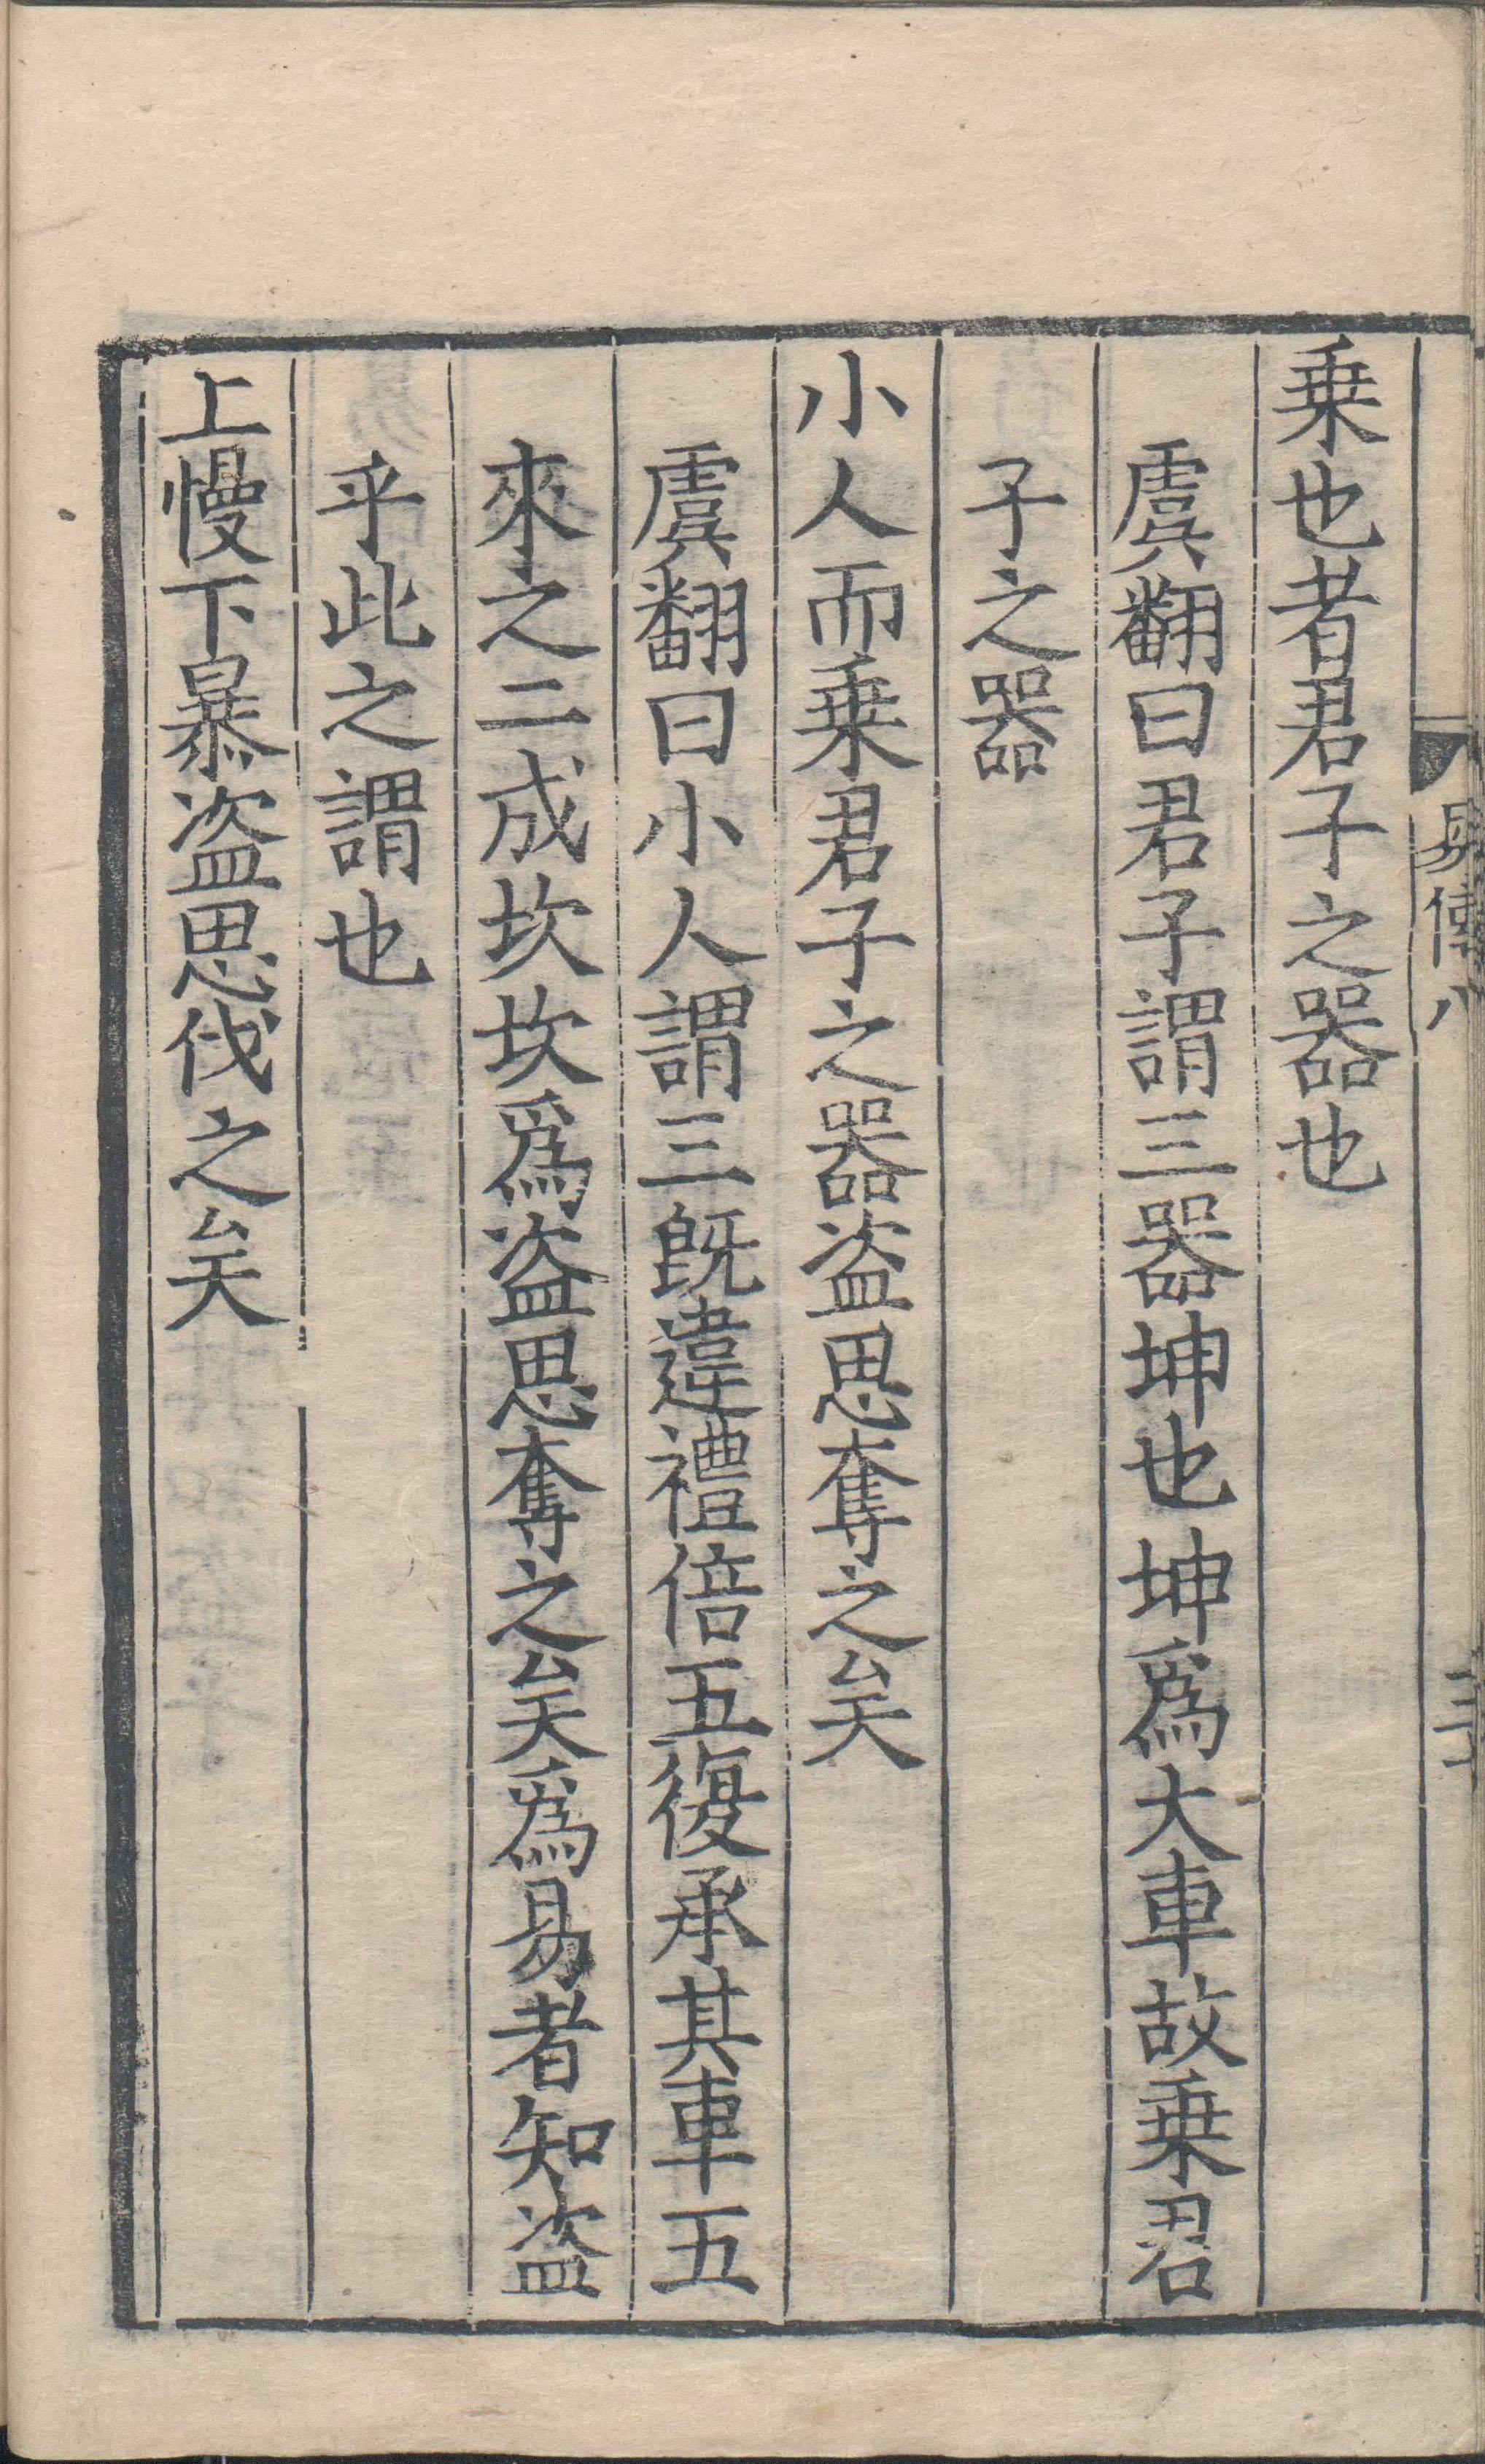 易傳八
乗也者君子之器也
虞翻曰君子謂三器坤也坤爲大車故乗君
子之器
小人而乗君子之器盗思奪之矣
虞翻曰小人謂三旣違禮倍五復承其車五
來之二成坎坎爲盗思奪之矣爲易者知盗
乎此之謂也
上慢下暴盗思伐之矣